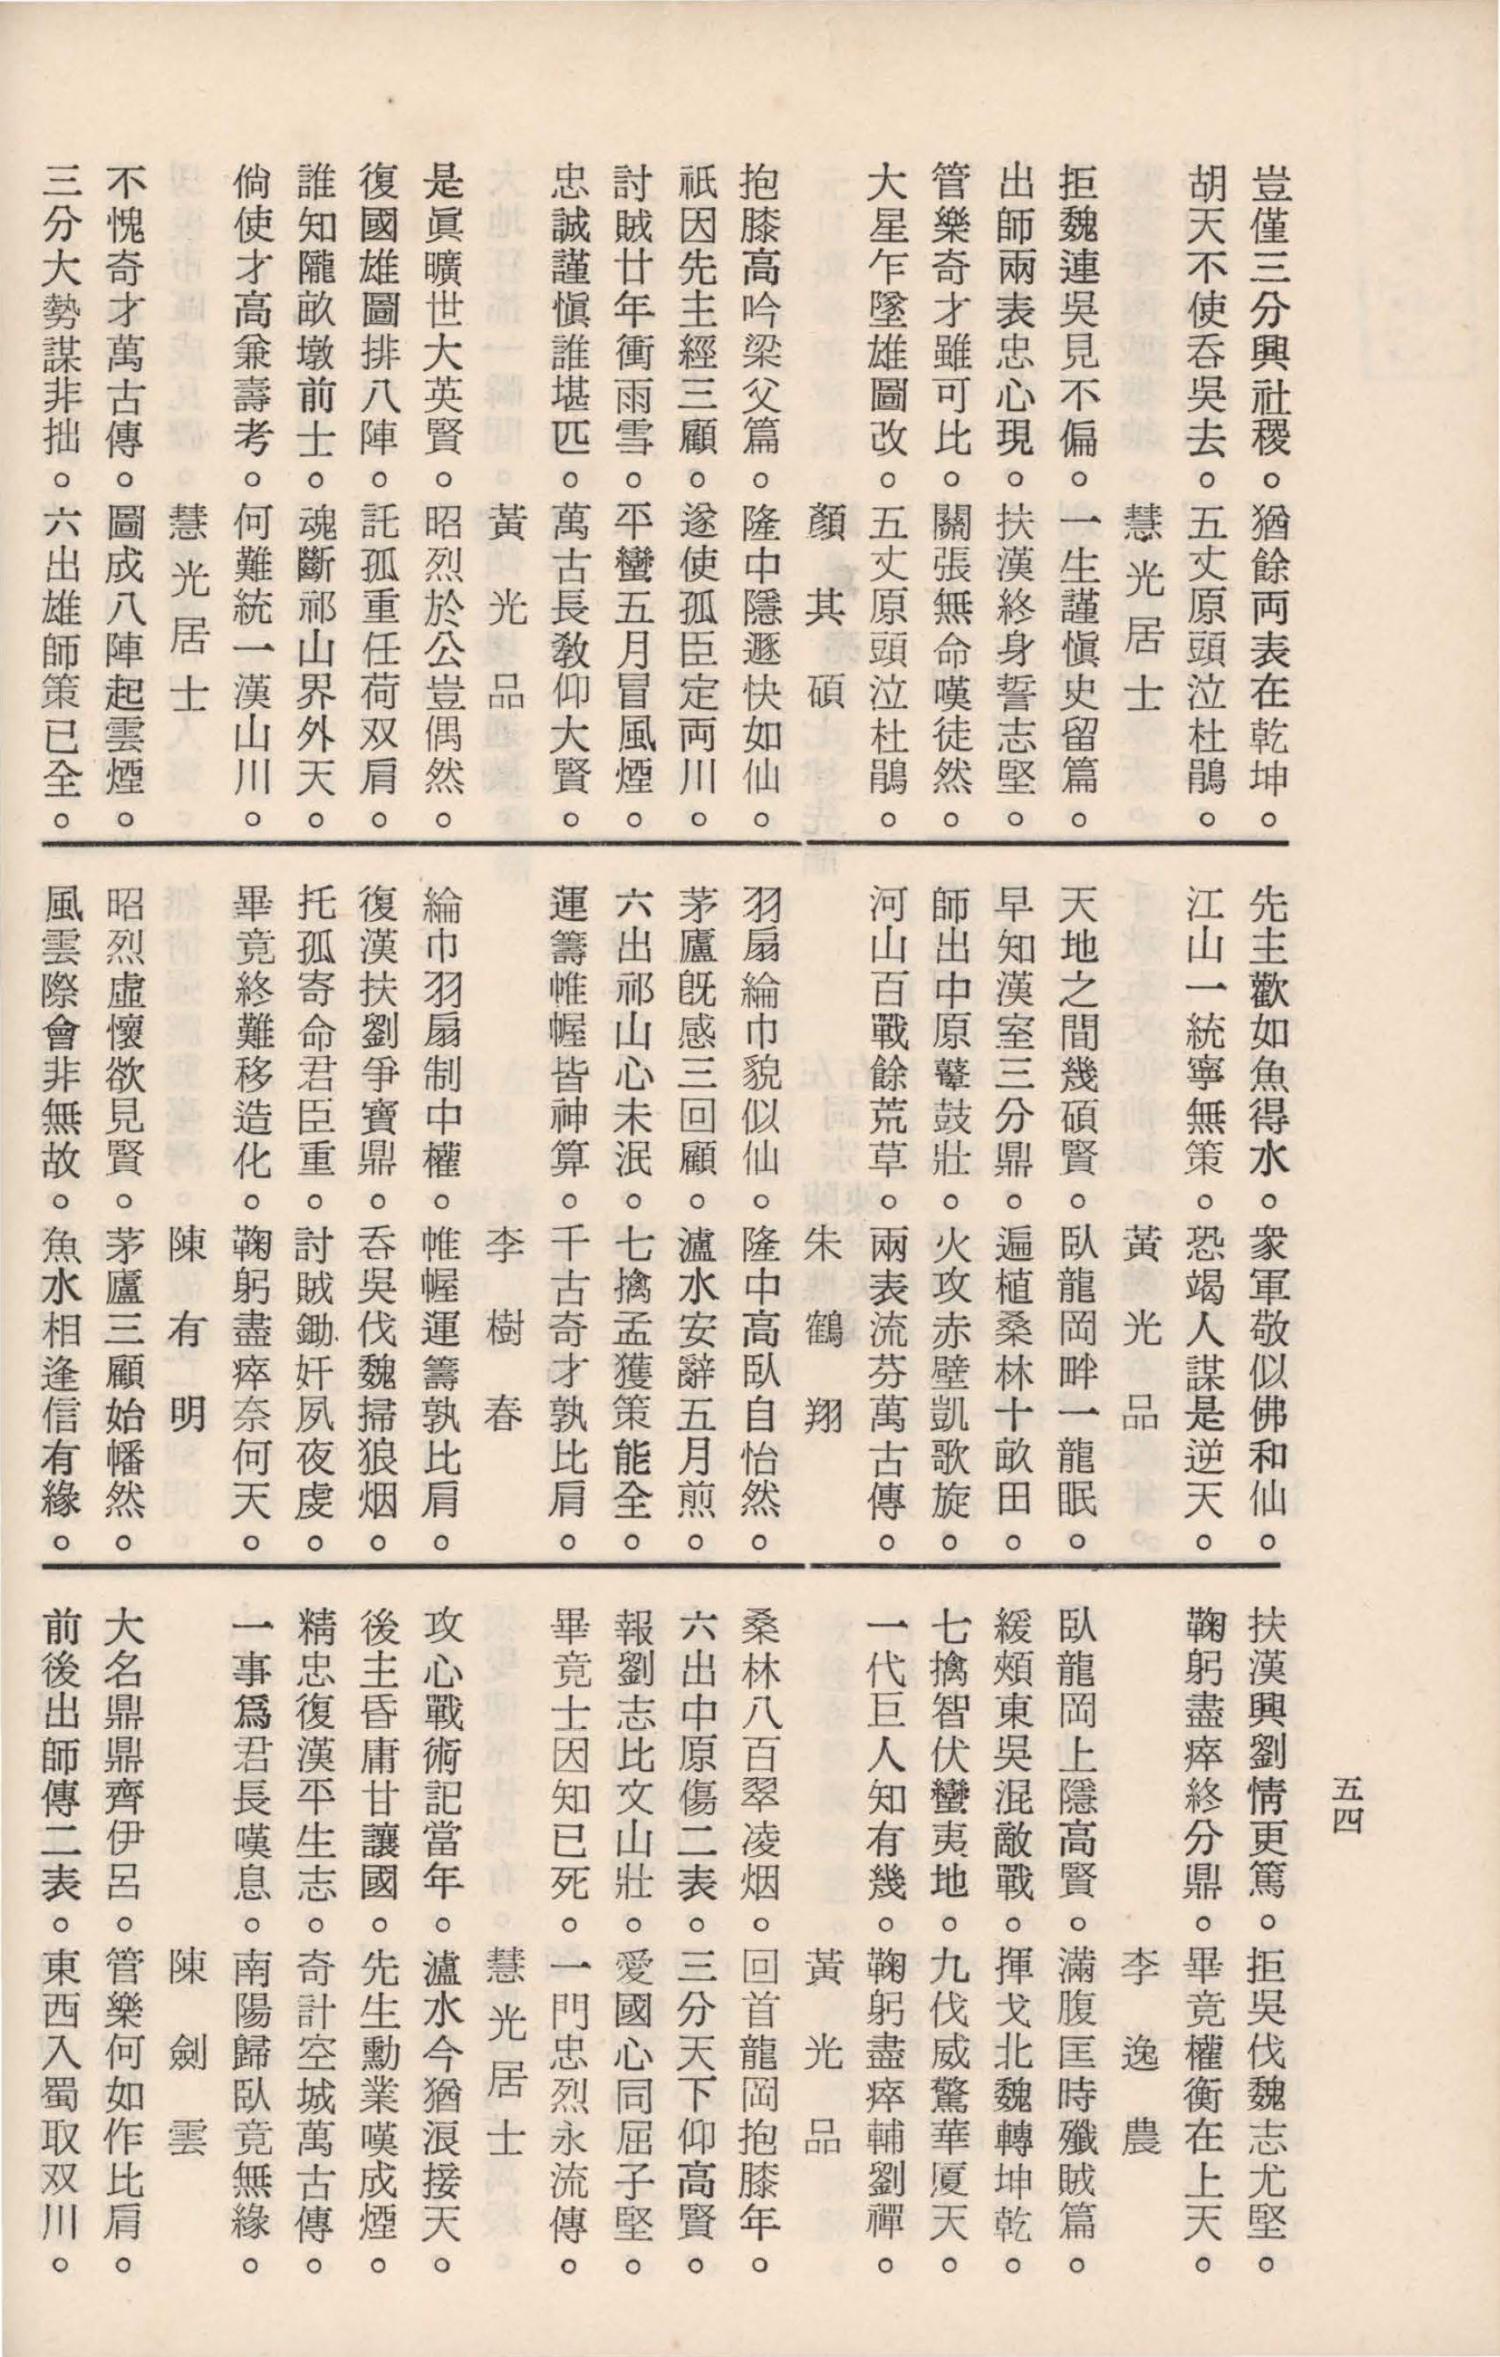 豈僅三分興社稷。猶餘両表在乾坤。
胡天不使吞吳去。五丈原頭泣杜鵑。
慧光居士
拒魏連吳見不偏。一生謹愼史留篇。
出師兩表忠心現。扶漢終身誓志堅。
管樂奇才雖可比。關張無命嘆徒然。
大星乍墜雄圖改。五丈原頭泣杜鵑。
顏其碩
抱膝高吟梁父篇。隆中隱遯快如仙。
祇因先主經三顧。遂使孤臣定両川。
討賊廿年衝雨雪。平蠻五月冒風煙。
忠誠謹愼誰堪匹。萬古長敎仰大賢。
黃光品
是眞曠世大英賢。昭烈於公豈偶然。
復國雄圖排八陣。託孤重任荷双肩。
誰知隴畝墩前士。魂斷祁山界外天。
倘使才高兼壽考。何難統一漢山川。
慧光居士
不愧奇才萬古傳。圖成八陣起雲煙。
三分大勢謀非拙。六出雄師策已全。
先主歡如魚得水。衆軍敬似佛和仙。
江山一統寧無策。恐竭人謀是逆天。
黃光品
天地之間幾碩賢。臥龍岡畔一龍眠。
早知漢室三分鼎。遍植桑林十畝田。
師出中原鼙鼓壯。火攻赤壁凱歌旋。
河山百戰餘荒草。兩表流芬萬古傳。
朱鶴翔
羽扇綸巾貌似仙。隆中高臥自怡然。
茅廬旣感三回顧。瀘水安辭五月煎。
六出祁山心未泯。七擒孟獲策能全。
運籌帷幄皆神算。千古奇才孰比肩。
李樹春
綸巾羽扇制中權。帷幄運籌孰比肩。
復漢扶劉爭寶鼎。吞吳伐魏掃狼烟。
托孤寄命君臣重。討賊鋤奸夙夜虔。
畢竟終難移造化。鞠躬盡瘁奈何天。
陳有明
昭烈虛懷欲見賢。茅廬三顧始幡然。
風雲際會非無故。魚水相逢信有緣。
扶漢興劉情更篤。拒吳伐魏志尤堅。
鞠躬盡瘁終分鼎。畢竟權衡在上天。
李逸農
臥龍岡上隱高賢。滿腹匡時殲賊篇。
緩頰東吳混敵戰。揮戈北魏轉坤乾。
七擒智伏蠻夷地。九伐威驚華厦天。
一代巨人知有幾。鞠躬盡瘁輔劉禪。
黃光品
桑林八百翠凌烟。回首龍岡抱膝年。
六出中原傷二表。三分天下仰高賢。
報劉志比文山壯。愛國心同屈子堅。
畢竟士因知已死。一門忠烈永流傳。
慧光居士
攻心戰術記當年。瀘水今猶浪接天。
後主昏庸甘讓國。先生勳業嘆成煙。
精忠復漢平生志。奇計空城萬古傳。
一事爲君長嘆息。南陽歸臥竟無緣。
陳劍雲
大名鼎鼎齊伊呂。管樂何如作比肩。
前後出師傳二表。東西入蜀取双川。
五四